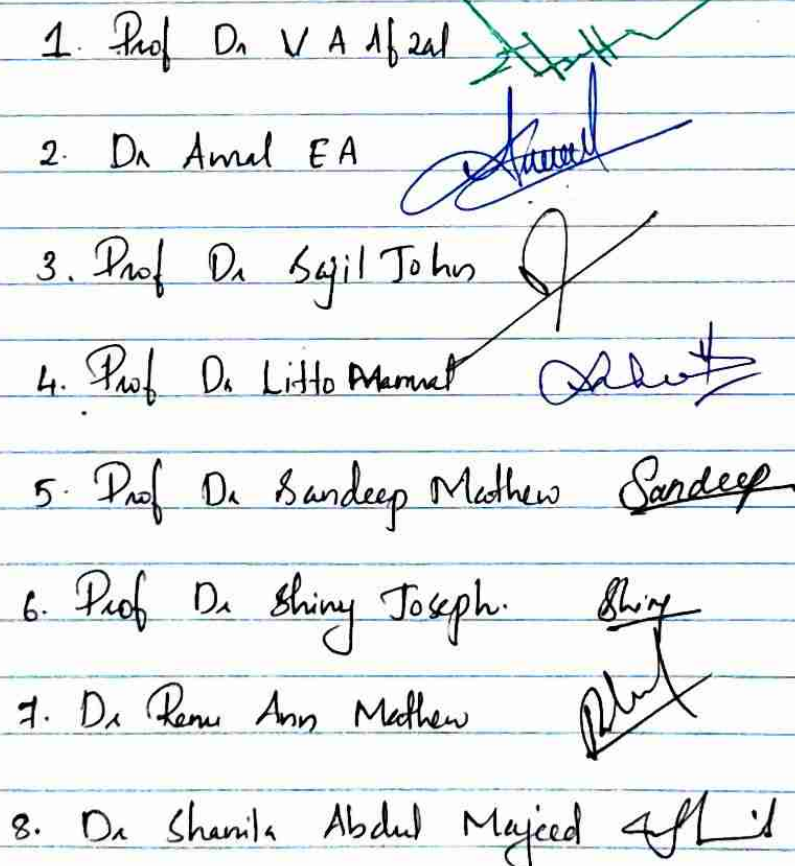 1. Prof Dr V A Afzal
2. Dr Amal E A
3. Prof Dr Sajil John
4. Prof Dr Litto Manual
5. Prof Dr Sandeep Mathew Sandeep
6. Prof Dr Shiny Joseph. Shiny
7. Dr Renu Ann Mathew
8. Dr Shamila Abdul Majeed